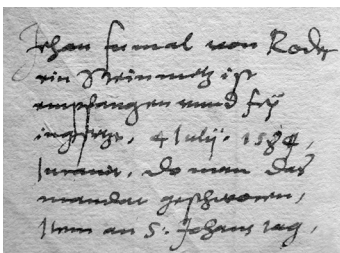 Jehan fumal von Roder
ein Steinmetz ist
empfangen vnnd frÿ
ingesetze, 4 Julÿ. 1584,
Iurauit, do man das
mandat geschworen,
Item an S. Johans tag,